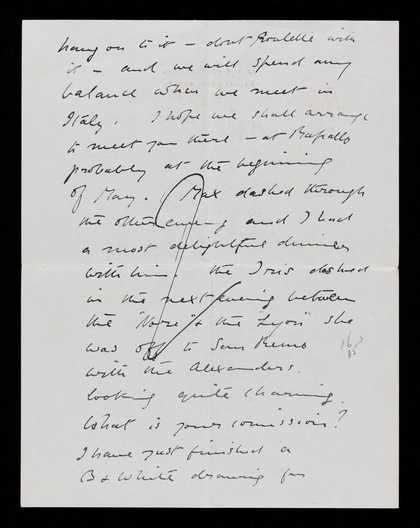 hang on to it – don't Roulette with
it – and we will spend any
balance when we meet in
Italy. I hope we shall arrange
to meet you there – at Rapallo
probably at the beginning
of May. Max dashed through
the other evening and I had
a most delightful dinner
with him. The Iris dashed
in the next evening between
the & the "Lyon" she
was off to San Remo
with the Alexanders.
looking quite charming.
What is your comission?
I have just finished a
B & White drawing for